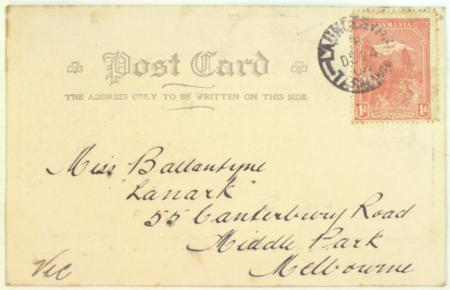 Post Card
THE ADDRESS ONLY TO BE WRITTEN ON THIS SIDE.
TASMANIA
1d 1d
Miss Ballantyne
"Lanark"
55 Canterbury Road
Middle Park
Melbourne
Vic